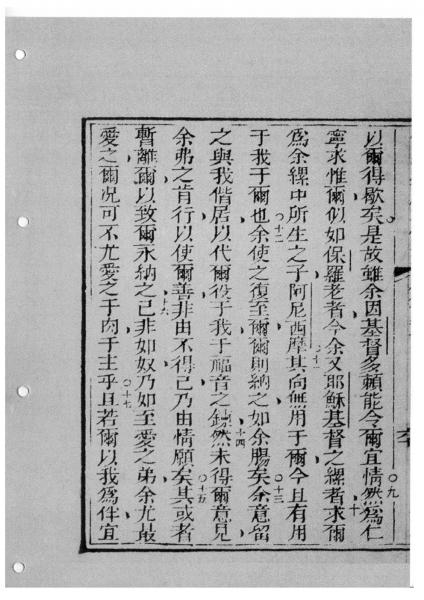 以爾得歇矣是故雖余因基督多賴能令爾宜情然為仁
寧求惟爾似如保羅老者今余又耶穌基督之縲者求爾
為余縲中所生之子阿尼西摩其向無用于爾今且有用
于我于爾也余使之復至爾爾則納之如余腸矣余意留
之與我偕居以代爾役于我于福音之鎖然未得爾意見
余弗之肯行以使爾善非由不得已乃由情願矣其或者
暫離爾以致爾永納之已非如奴乃如至愛之弟余尤最
愛之爾况可不尤愛之于肉于主乎且若爾以我為伴宜